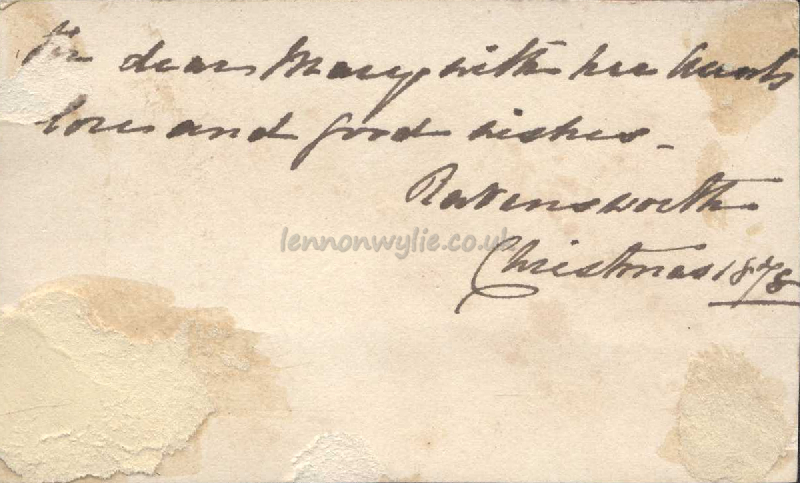 For dear Mary with her Aunts
love and good wishes –
Ravensworth
lennonwylie.co.uk
Christmas 1878